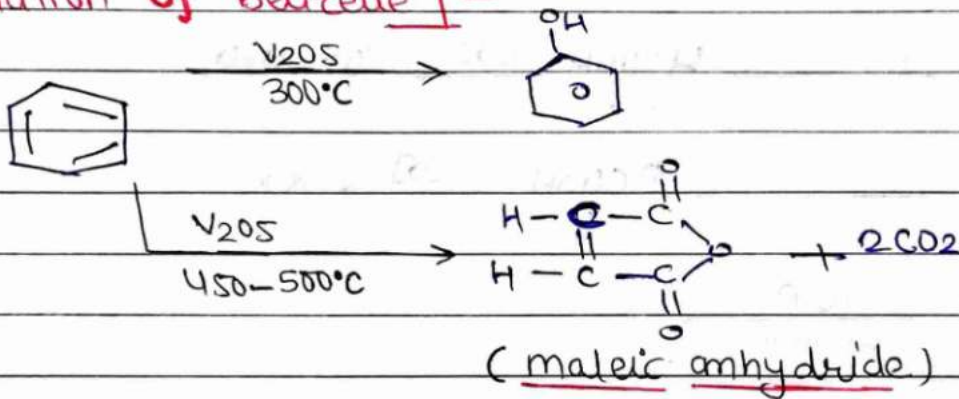 of Benzene]
V2O5
300°C
OH
V2O5
450-500°C
O
H-C-C
O + 2CO2
H-C-C
O
(maleic anhydride)